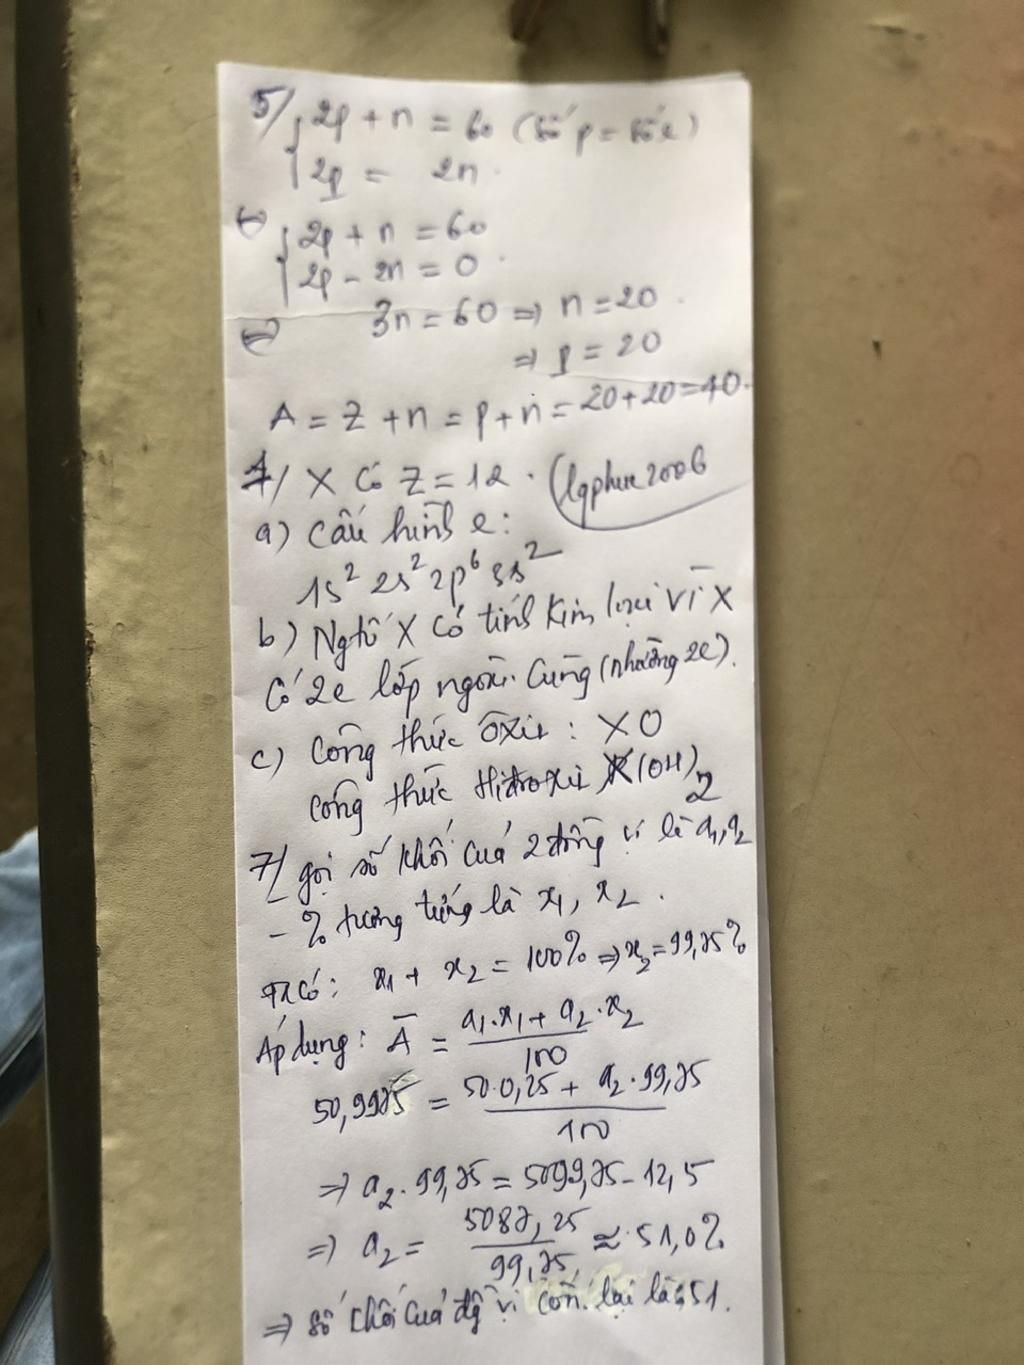 5/ { 2p + n = 60 (số p = số e)
2p = 2n.
(-) { 2p + n = 60
2p - 2n = 0.
(=) 3n = 60 => n = 20.
=> p = 20
A = Z + n = p + n = 20 + 20 = 40.
4/ X có Z = 12. (lqphuc2006
a) Cấu hình e:
1s² 2s² 2p⁶ 3s²
b) Ngtố X có tính kim loại vì X
có 2e lớp ngoài cùng (nhường 2e).
c) Công thức ôxit: XO
Công thức Hiđroxit X(OH)₂
7/ gọi số khối của 2 đồng vị là a₁, a₂
- % tương tứng là x₁, x₂.
Ta có: x₁ + x₂ = 100% => x₂ = 99,75%
Áp dụng: A̅ = (a₁.x₁ + a₂.x₂)/100
50,9975 = (50.0,25 + a₂.99,75)/100
=> a₂.99,75 = 5099,75 - 12,5
=> a₂ = 5087,25/99,75 ≈ 51,0%
=> Số khối của đg vị còn lại là: 51.